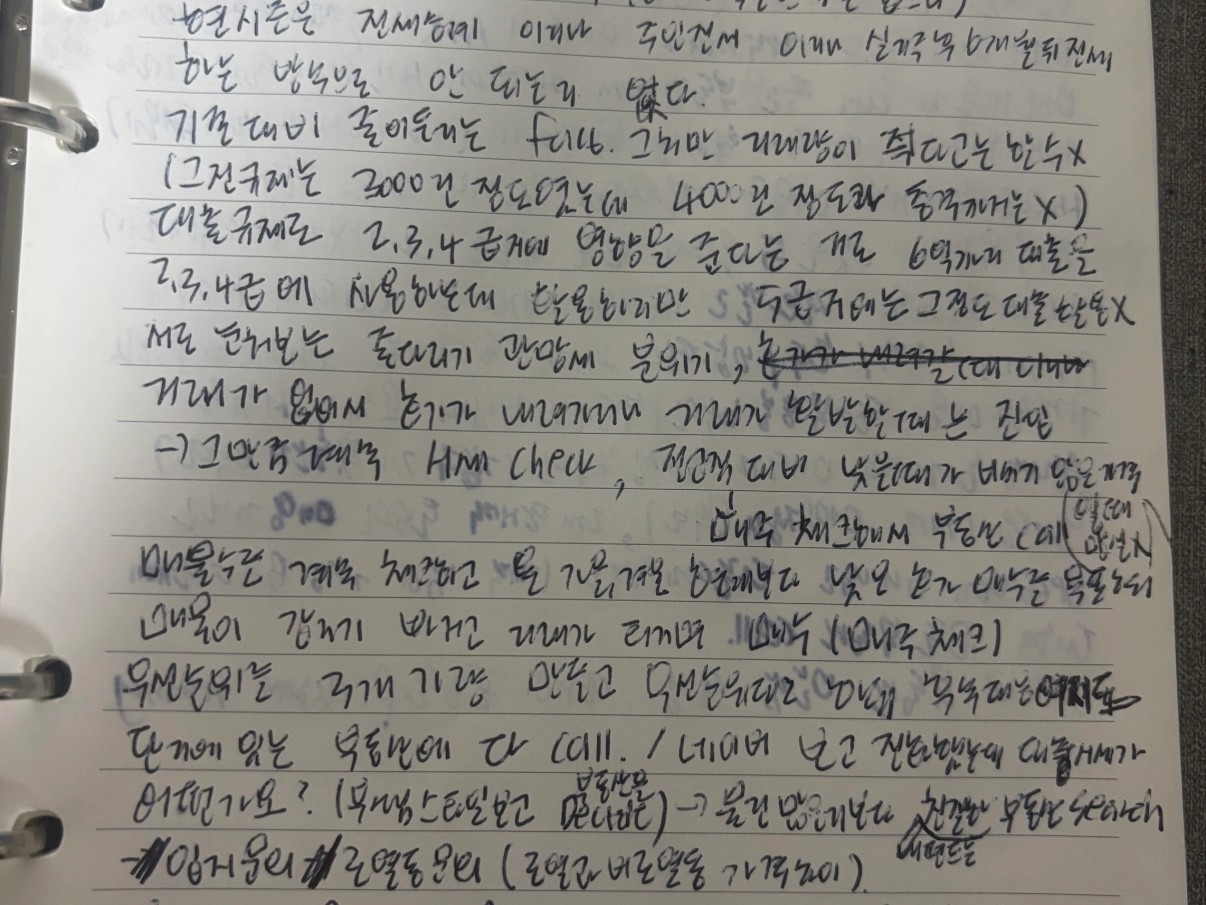 현시즌은 전세승계 이거나 주인전세 이거나 실거주 6개월뒤전세
하는 방식으로 안 되는지 없다.
기준대비 줄어들다는 feel. 그치만 거래량이 적다고는 할수X
(그전규제는 3000건 정도였는데 4000건 정도라 충격까지는X)
대출규제로 2,3,4급지에 영향을 준다는 거로 6억까지 대출을
2,3,4급에 사용하는데 활용하지만 5급지에는 그정도 대출활용X
서로 눈치보는 줄다리기 관망세 분위기,
거래가 없어서 호가가 내려가거나 거래가 활발할때는 진입
→ 그만큼 계속 시세 check, 전고점 대비 낮을때가 버버지 않을
매주 체크해서 부동산 call (일때
매물수를 계속 체크하고 올 가을,겨울 현재보다 낮은 호가 매수를 목표하되
매물이 갑자기 빠지고 거래가 터지면 매수 (매주 체크)
우선순위를 3개 가량 만들고 우선순위대로
단지에 있는 부동산에 다 call. / 네이버 보고 전화했는데 대출시세가
어떤가요? (부동산을) → 물건 많은지보다 친절한 부동산 search
입지문의 로열동문의 (로열과 비로열동 가격차이).